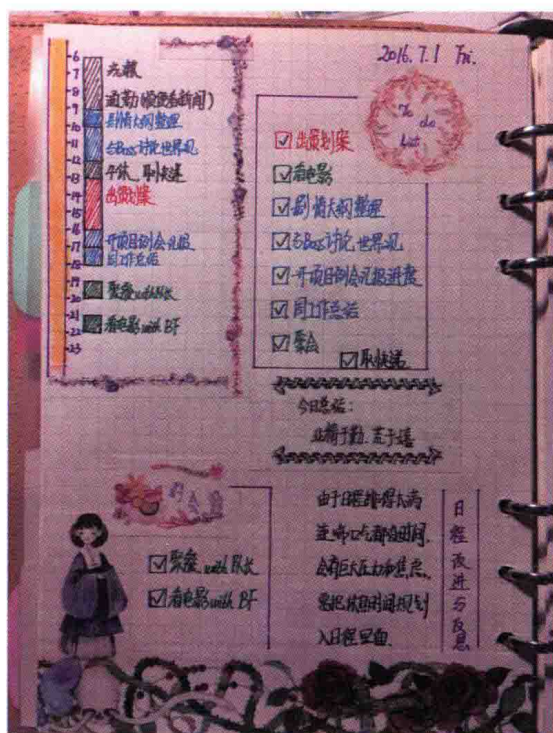 2016.7.1 Fri.
6
7
8
9
10
11
12
13
14
15
16
17
18
19
20
21
22
23
洗漱
通勤(顺便看新闻)
剧情大纲整理
与Boss讨论世界观
午休、取快递
出策划案
开项目例会汇报
周工作总结
聚餐with队长
看电影with BF
To do list
☑出策划案
☑看电影
☑剧情大纲整理
☑与Boss讨论世界观
☑开项目例会汇报进度
☑周工作总结
☑聚会
☑取快递
今日总结:
业精于勤、荒于嬉
☑聚餐with队长
☑看电影with BF
由于日程排得太满
连喘口气都没时间、
会有巨大压力和焦虑、
要把休息时间规划
入日程里面.
日程改进与反思